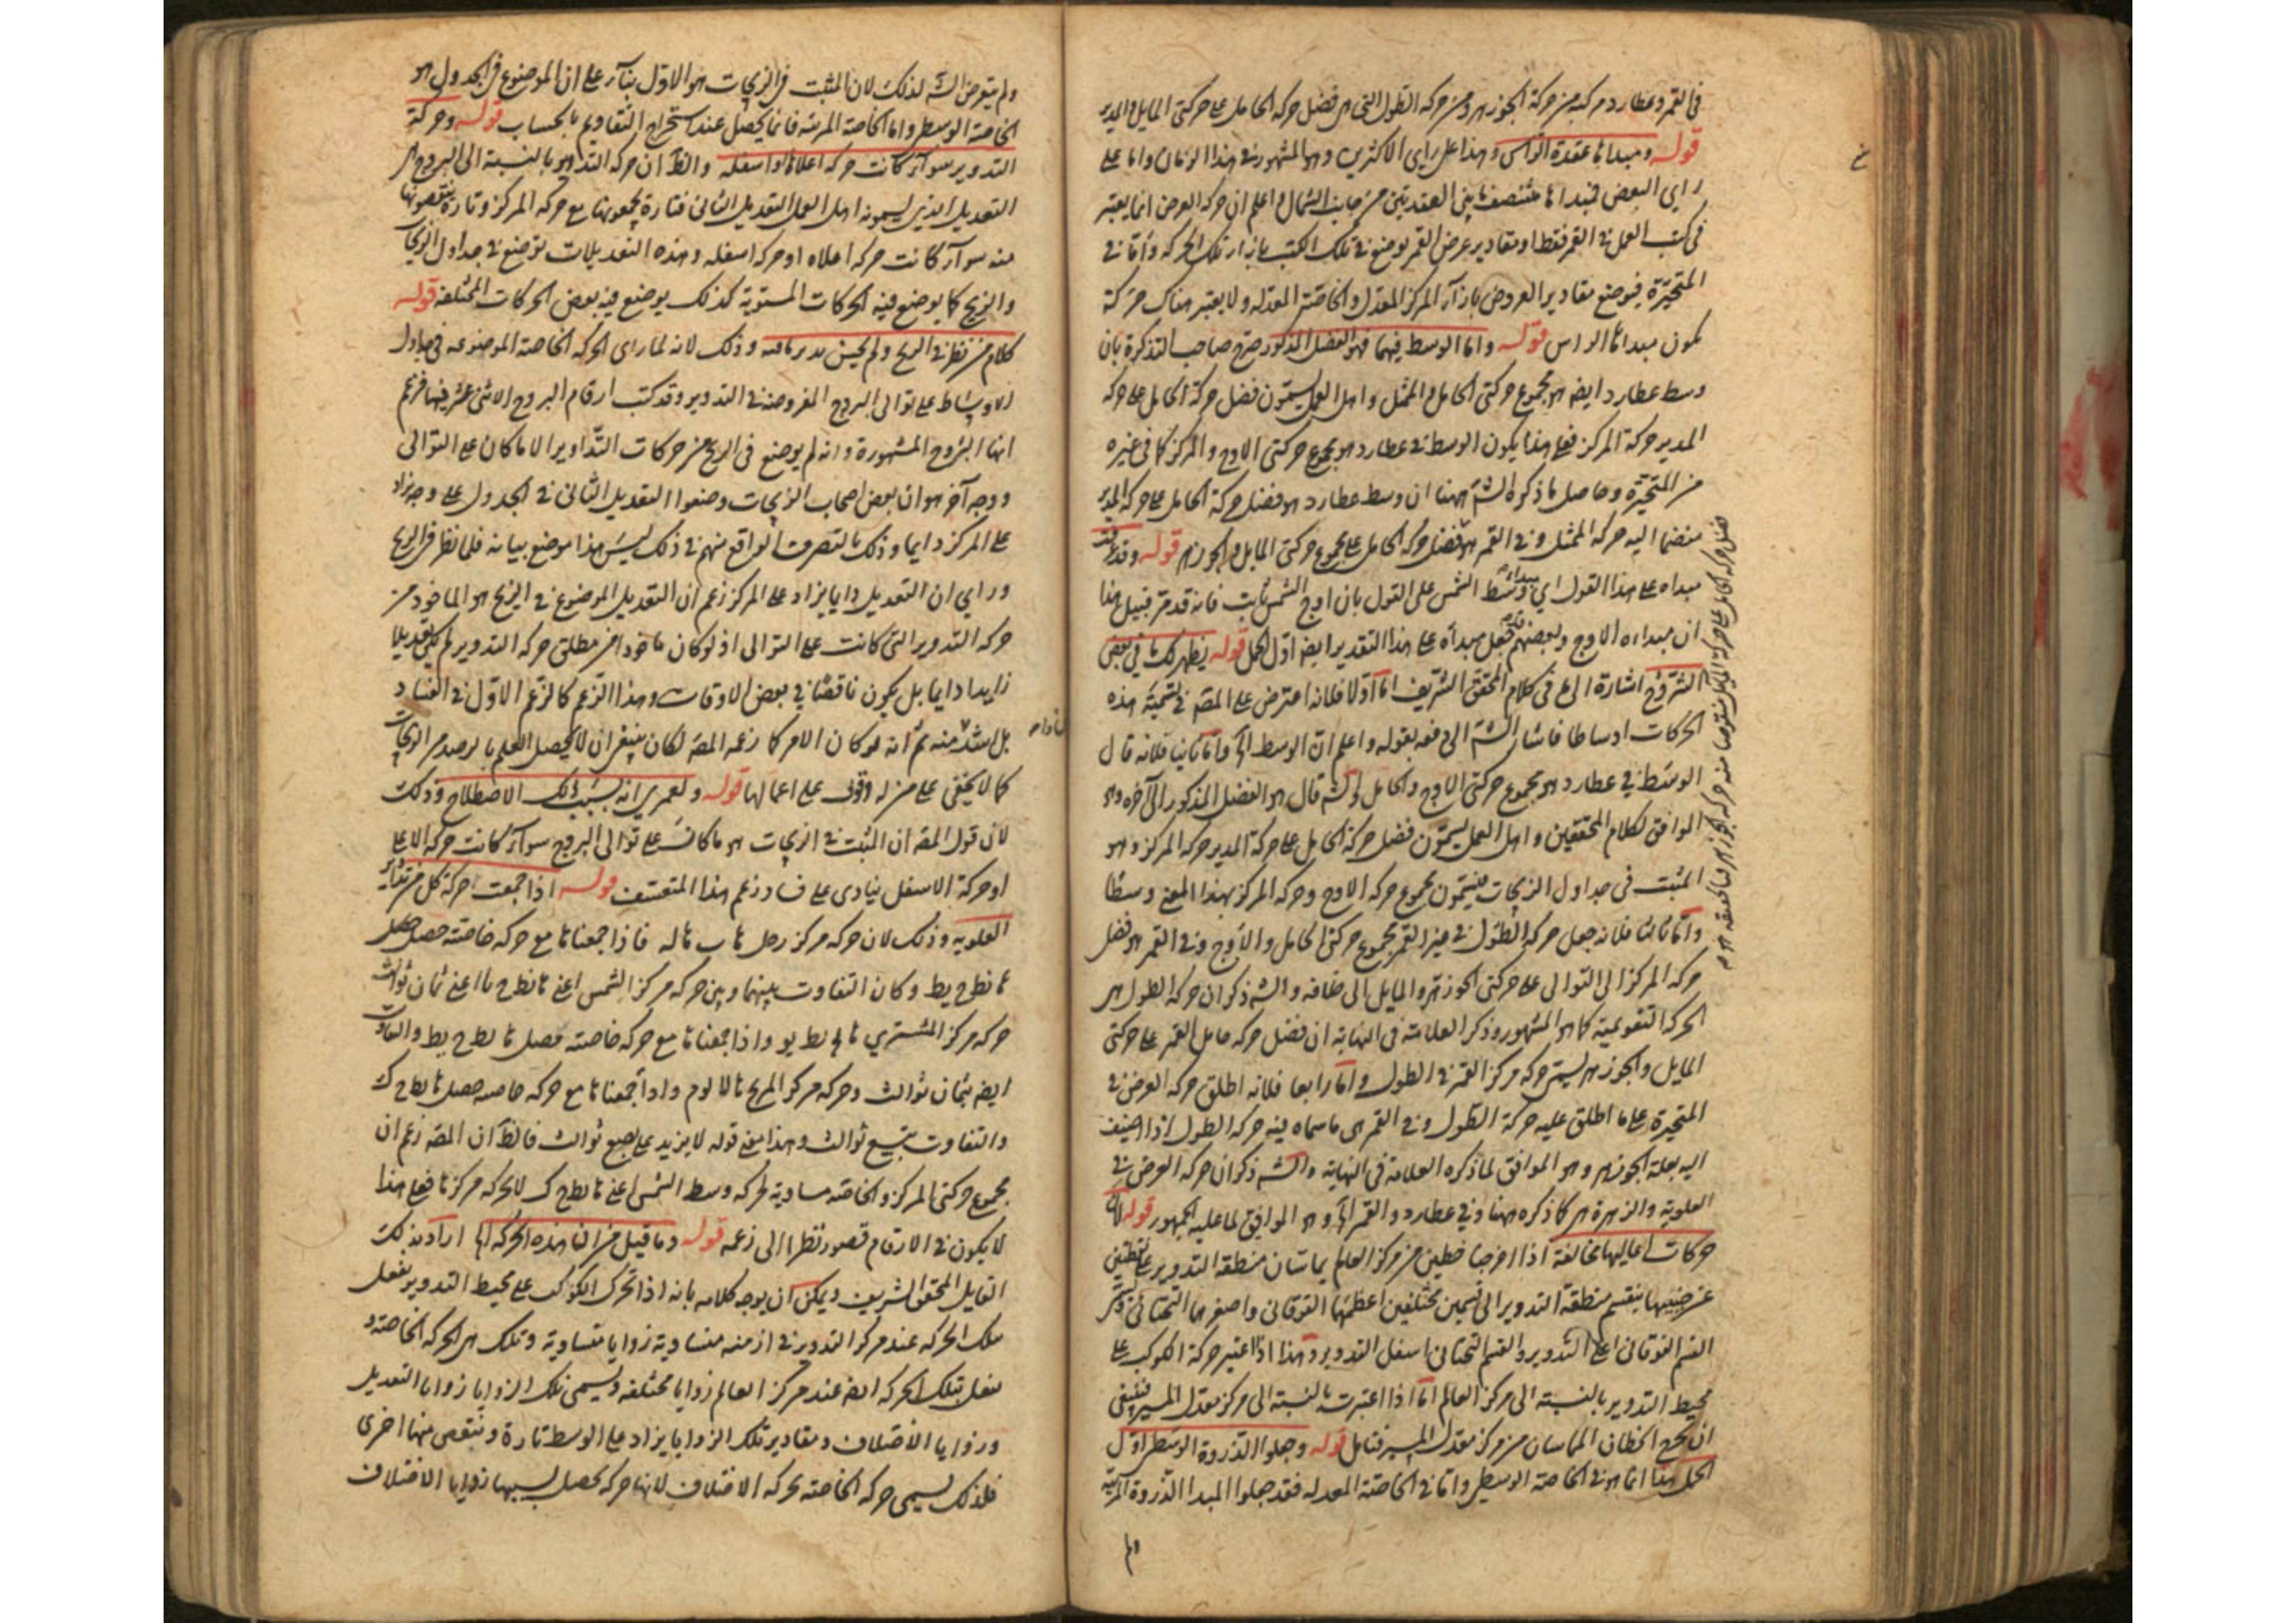 في القمر وعطارد مركبة من حركة الجوزهر ومن حركة الطول التي هي فضل حركة الحامل على حركتي المايل والمدير
قوله ومبداها عقدة الراس وهذا على راى الاكثرين وهو المشهور في هذا الزمان واما على
راى البعض فمبداها منتصف ما بين العقدتين من جانب الشمال واعلم ان حركة العرض انما يعتبر
في كتب العمل في القمر فقط اذ مقادير عرض القمر توضع في تلك الكتب بازاء تلك الحركة واما في
المتحيرة فيوضع مقادير العروض بازآء المركز المعدل والخاصة المعدله ولا يعتبر هناك حركة
يكون مبداها الراس قوله واما الوسط فيهما فهو الفضل المذكور صرح صاحب التذكرة بان
وسط عطارد ايضا هو مجموع حركتى الحامل والممثل واهل العمل يسمون فضل حركة الحامل على حركة
المدير حركة المركز فعلى هذا يكون الوسط في عطارد هو مجموع حركتى الاوج والمركز كما في غيره
من المتحيرة وحاصل ما ذكره الشه ههنا ان وسط عطارد هو فضل حركة الحامل على حركة المدير
منضما اليه حركة الممثل وفي القمر هو فضل حركة الحامل على مجموع حركتى المايل والجوزهر قوله وقد
مبداه على هذا القول اي وسط الشمس على القول بان اوج الشمس ثابت فانه قد مر قبيل هذا
ان مبداه الاوج وبعضهم جعل مبدأه على هذا التقدير ايضا اول الحمل قوله يظهر لك في بعض
الشروح اشارة الى ما في كلام المحقق الشريف اما اولا فلانه اعترض على المصه في تسمية هذه
الحركات اوساطا فاشار الشه الى دفعه بقوله واعلم ان الوسط الخ واما ثانيا فلانه قال
الوسط في عطارد هو مجموع حركتى الاوج والحامل والشه قال هو الفضل المذكور الى آخره وهو
الموافق لكلام المحققين واهل العمل يسمون فضل حركة الحامل على حركة المدير حركة المركز وهو
المثبت في جداول الزيجات فيسمون مجموع حركة الاوج وحركة المركز بهذا المعنى وسطا
واما ثالثا فلانه جعل حركة الطول في غير القمر مجموع حركتى الحامل والأوج وفي القمر هو فضل
حركة المركز الى التوالى على حركتى الجوزهر والمايل الى خلافه والشه ذكر ان حركة الطول هي
الحركة التقويمية كما هو المشهور وذكر العلامة في النهاية ان فضل حركة حامل القمر على حركتى
المايل والجوزهر يسمى حركة مركز القمر في الطول واما رابعا فلانه اطلق حركة العرض في
المتحيرة على ما اطلق عليه حركة الطول وفي القمر على ما سماه فيه حركة الطول اذا اضيف
اليه بعلة الجوزهر وهو الموافق لما ذكره العلامة في النهاية والشه ذكر ان حركة العرض في
العلوية والزهرة هي كما ذكره ههنا وفي عطارد والقمر الخ وهو الموافق لما عليه الجمهور قوله لان
حركات اعاليها مخالفة اذا اخرجنا خطين من مركز العالم يماسان منطقة التدوير على نقطتين
عن جنبيها ينقسم منطقة التدوير الى قسمين مختلفين اعظمهما الفوقاني واصغرهما التحتاني
القسم الفوقاني اعلى التدوير والقسم التحتاني اسفل التدوير وهذا اذا اعتبر حركة الكوكب على
محيط التدوير بالنسبة الى مركز العالم اما اذا اعتبرت بالنسبة الى مركز معدل المسير فينبغى
ان يخرج الخطان المماسان من مركز معدل المسير فتامل قوله وجعلوا الذروة الوسطى اول
الحمل هذا انما هو في الخاصة الوسطى واما في الخاصة المعدله فقد جعلوا المبدا الذروة المرئية
ولم
ولم يتعرض الشه لذلك لان المثبت في الزيجات هو الاول بنآء على ان الموضوع في الجدول هو
الخاصة الوسطى واما الخاصة المرئية فانما يحصل عند استخراج التقاويم بالحساب قوله وحركة
التدوير سوآء كانت حركة اعلاها او اسفله والظ ان حركة التدوير بالنسبة الى البروج هي
التعديل الذي يسمونه اهل العمل التعديل الثاني فتارة يجمعونها مع حركة المركز وتارة ينقصونها
منه سوآء كانت حركة اعلاه او حركة اسفله وهذه التعديلات توضع في جداول الزيجات
والزيج كما يوضع فيه الحركات المستوية كذلك يوضع فيه بعض الحركات المختلفة قوله
كلام من نظر في الزيج ولم يحسن تدبر ما فيه وذلك لانه لما راى الحركة الخاصة الموضوعة في جداول
الاوساط على توالى البروج المفروضة في التدوير وقد كتب ارقام البروج الاثنى عشر فيها فزعم
انها البروج المشهورة وانه لم يوضع في الزيج من حركات التداوير الا ما كان على التوالى
ووجه آخر هو ان بعض اصحاب الزيجات وضعوا التعديل الثاني في الجدول على وجه يزاد
على المركز دايما وذلك بالتصرف الواقع منهم في ذلك ليس هذا موضع بيانه فلما نظر في الزيج
وراى ان التعديل دايما يزاد على المركز زعم ان التعديل الموضوع في الزيج هو الماخوذ من
حركة التدوير التي كانت على التوالى اذ لو كان ماخوذا من مطلق حركة التدوير لم يكن تعديلا
زايدا دايما بل يكون ناقصا في بعض الاوقات وهذا الزعم كالزعم الاول في الفساد
بل اشد منه ثم انه لو كان الامر كما زعمه المصه لكان ينبغى ان لا يحصل العلم بالرصد من الزيجات
كما لا يخفى على من له وقوف على اعمالها قوله ولعمري انه بسبب ذلك الاصطلاح وذلك
لان قول المصه ان المثبت في الزيجات هو ما كان على توالى البروج سوآء كانت حركة الاعلى
او حركة الاسفل ينادى على فساد زعم هذا المتعسف قوله اذا جمعت حركة كل من
العلوية وذلك لان حركة مركز زحل ب فاذا جمعناها مع حركة خاصته حصل
نط ح يط وكان التفاوت بينهما وبين حركة مركز الشمس اعنى نط ح اعنى ثمان ثوالث
حركة مركز المشترى واذا جمعناها مع حركة خاصته حصل نط ح يط والتفاوت
ايضا بثمان ثوالث وحركة مركز المريخ واذا جمعناها مع حركة خاصته حصل نط ح ك
والتفاوت بتسع ثوالث وهذا معنى قوله لا يزيد على بضع ثوالث فالظ ان المصه زعم ان
مجموع حركتى المركز والخاصة مساوية لحركة وسط الشمس اعنى نط ح ك لا لحركة مركزها فعلى هذا
لا يكون في الارقام قصور نظرا الى زعمه قوله وما قيل من ان هذه الحركة الخ اراد بذلك
القايل المحقق الشريف ويمكن ان يوجه كلامه بانه اذا تحرك الكوكب على محيط التدوير يفعل
تلك الحركة عند مركز التدوير في ازمنة متساوية زوايا متساوية وتلك هي الحركة الخاصة و
يفعل بتلك الحركة ايضا عند مركز العالم زوايا مختلفة ويسمى تلك الزوايا زوايا التعديل
وزوايا الاختلاف ومقادير تلك الزوايا يزاد على الوسط تارة وينقص منها اخرى
فلذلك يسمى حركة الخاصة بحركة الاختلاف لانها حركة يحصل بسببها زوايا الاختلاف